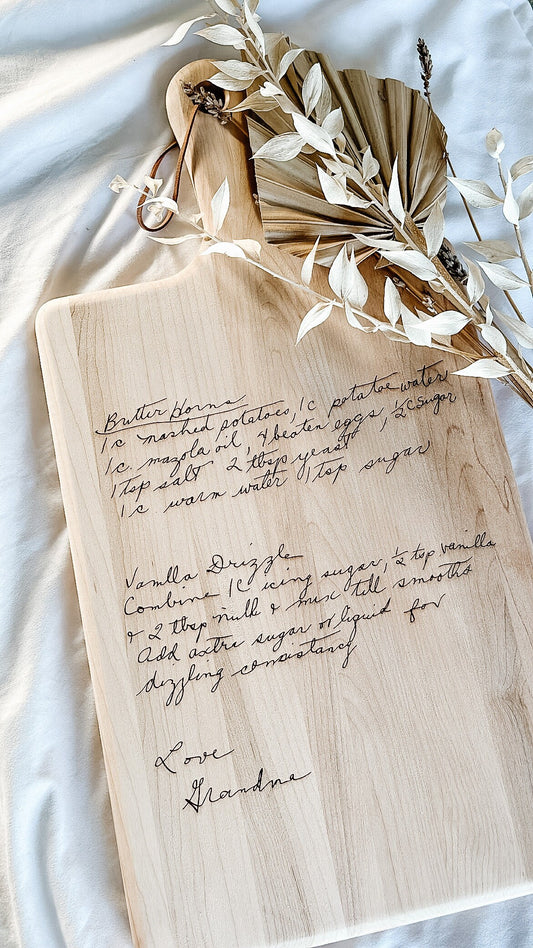 Butter Horns
1c mashed potatoes, 1c potatoe water
1c. mazola oil, 4 beaten eggs, ½c sugar
1 tsp salt 2 tbsp yeast
1c warm water 1 tsp sugar
Vanlla Drizzle
Combine 1c icing sugar, ½ tsp vanilla
& 2 tbsp milk & mix till smooth
Add extre sugar or liquid for
dizzling consistancy
Love
Grandma